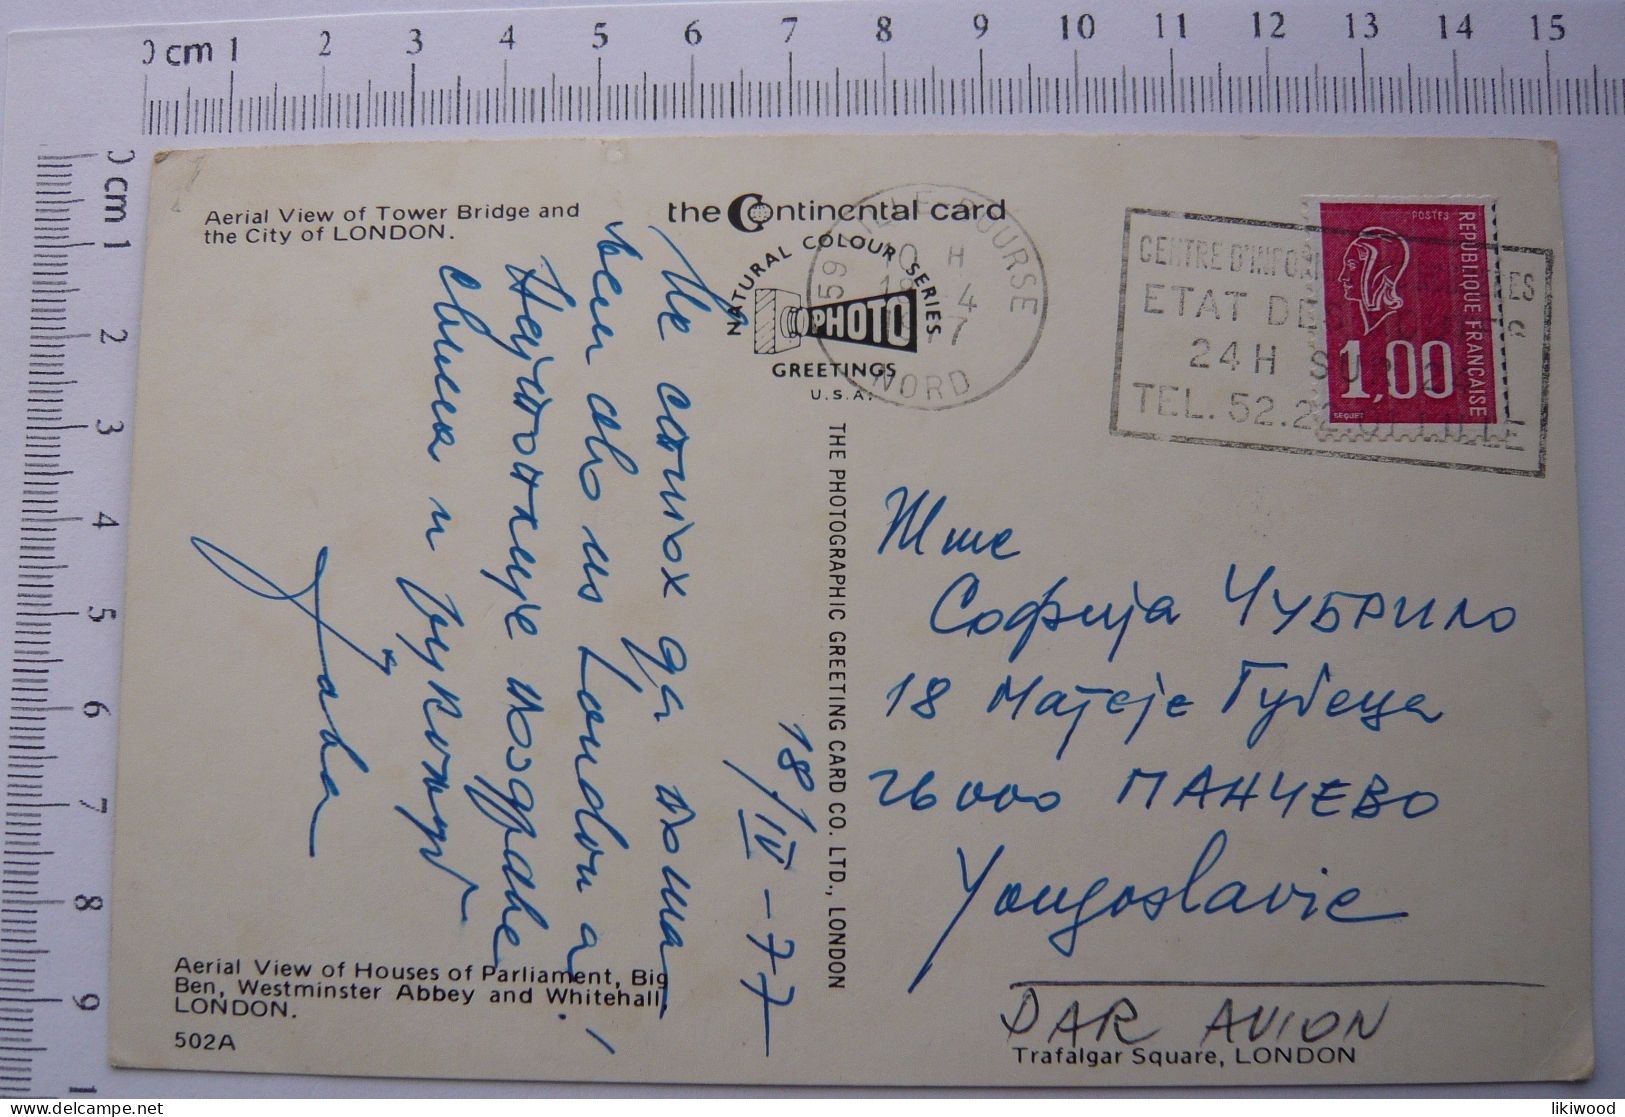 0 cm 1 2 3 4 5 6 7 8 9 10 11 12 13 14 15
0 cm 1 2 3 4 5 6 7 8 9 1
Aerial View of Tower Bridge and
the City of LONDON.
the Continental card
NATURAL COLOUR SERIES
PHOTO
GREETINGS
U.S.A.
59 LILLE BOURSE
10 H
18 4
1977
NORD
CENTRE D'INFOR
ES
ETAT DES
24H SUR 24
TEL. 52.22.01 LILLE
POSTES
REPUBLIQUE FRANÇAISE
1,00
BEQUET
THE PHOTOGRAPHIC GREETING CARD CO. LTD., LONDON
18/IV-77
Не стигох да пошаљем
ово из London а!
Најтоплије поздраве
Јава
Мме
Софија ЧУБРИЛО
18 Матеје Губеца
26000 ПАНЧЕВО
Yougoslavie
PAR AVION
Trafalgar Square, LONDON
Aerial View of Houses of Parliament, Big
Ben, Westminster Abbey and Whitehall,
LONDON.
502A
likiwood